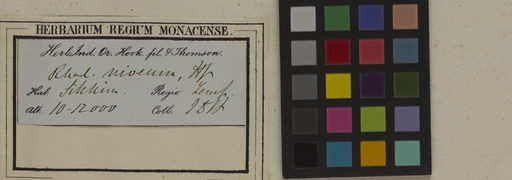 HERBARIUM REGIUM MONACENSE.
Herb. Ind. Or. Hook. fil. & Thomson.
Rhod. niveum, Hf
Hab. Sikkim. Regio Temp.
Alt. 10-12000 Coll. J D H